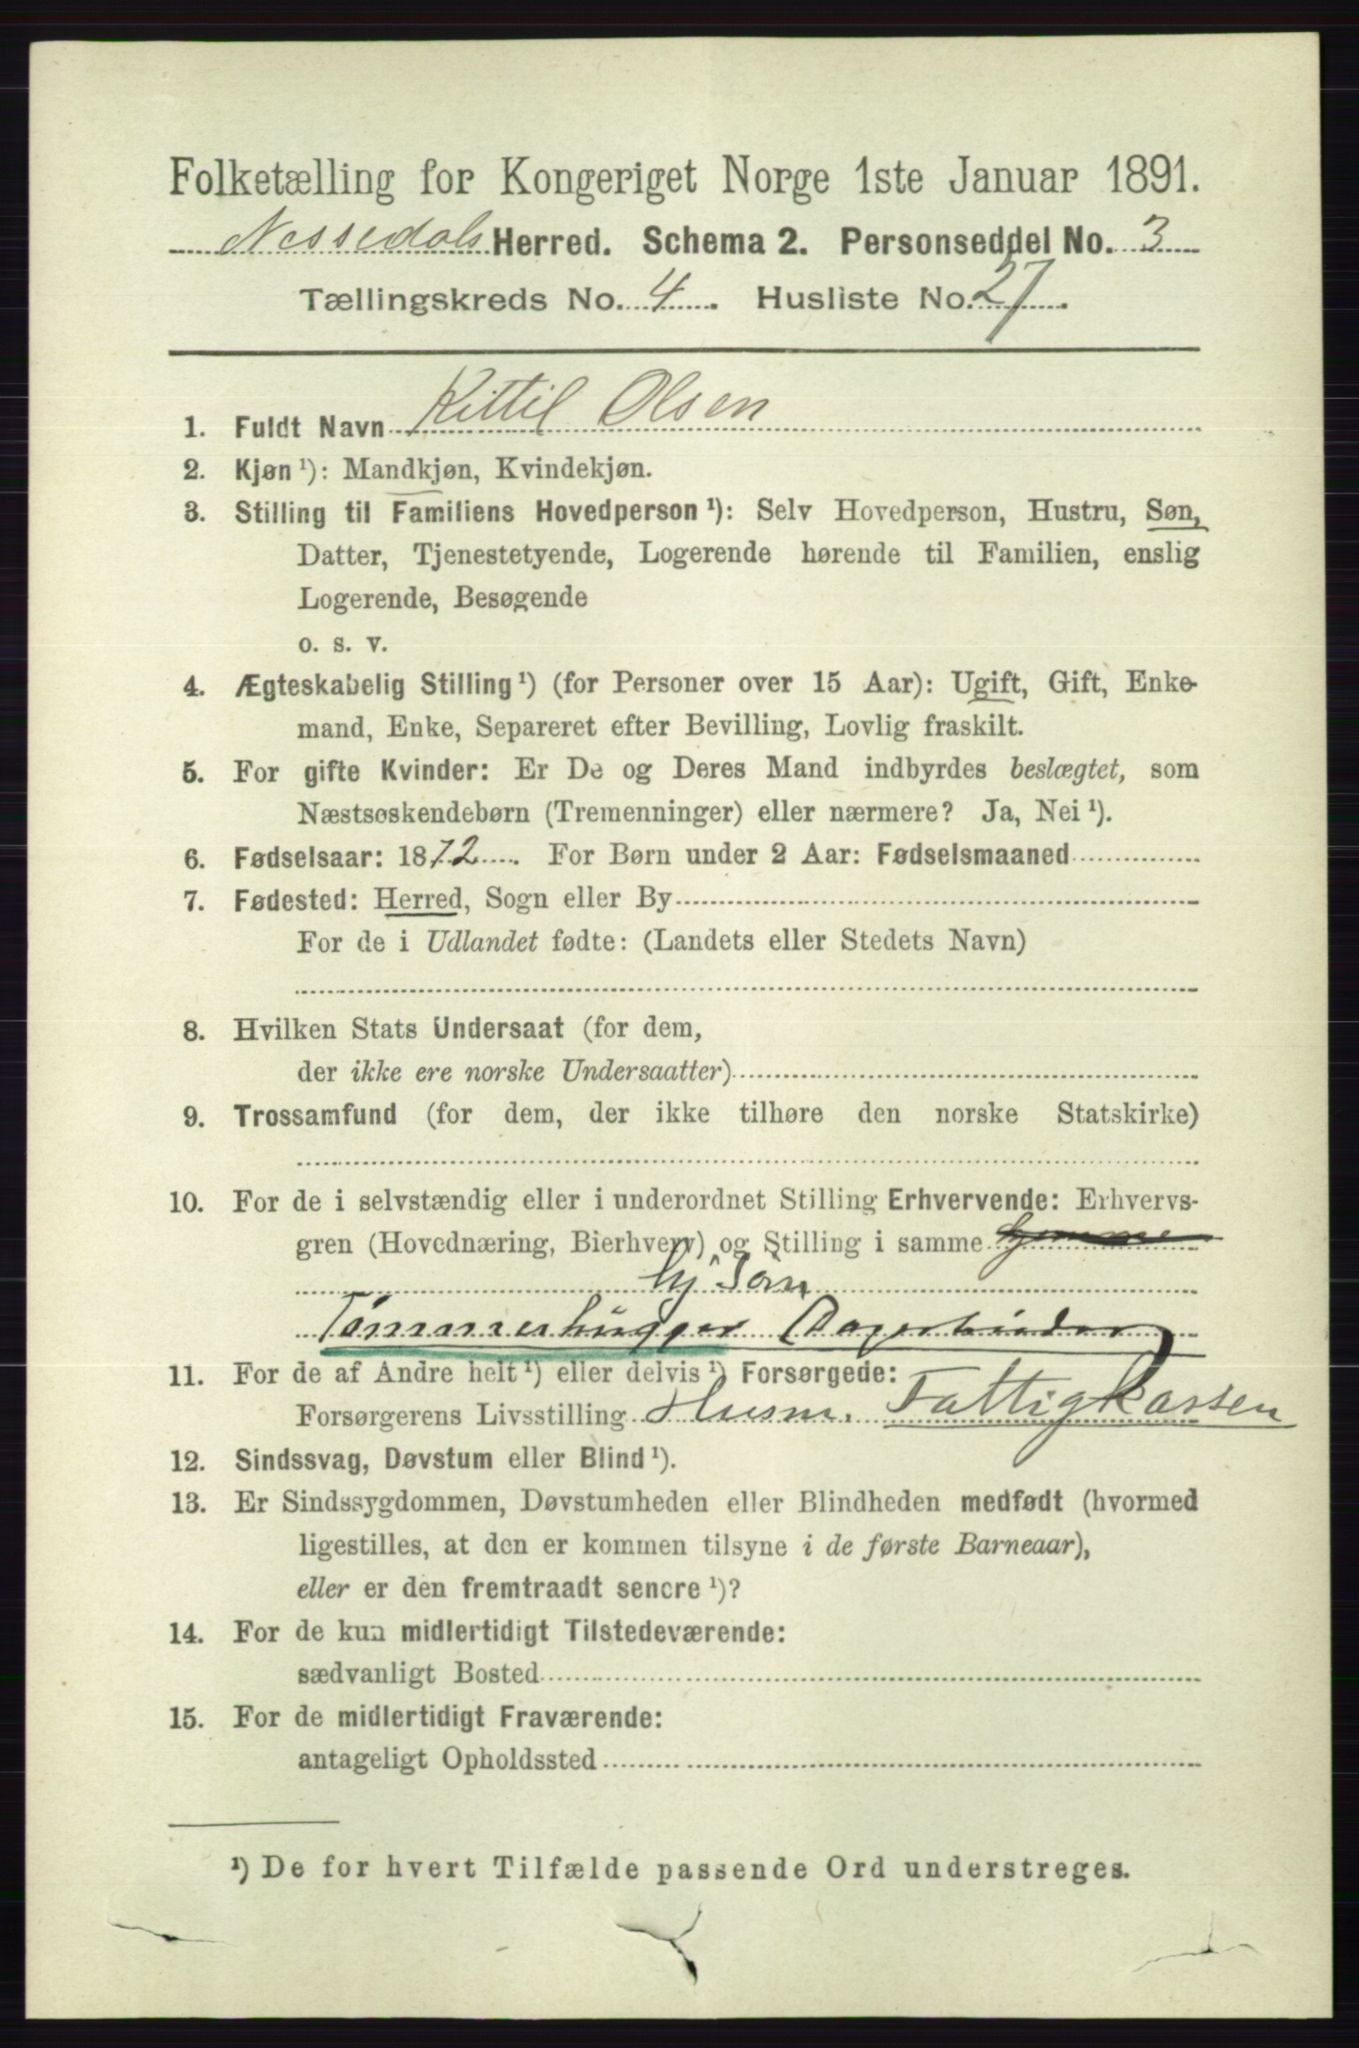 Folketælling for Kongeriget Norge 1ste Januar 1891.
Nissedals Herred. Schema 2. Personseddel No. 3
Tællingskreds No. 4. Husliste No. 27.
1. Fuldt Navn Kittil Olsen
2. Kjøn ¹): Mandkjøn, Kvindekjøn.
3. Stilling til Familiens Hovedperson ¹): Selv Hovedperson, Hustru, Søn,
Datter, Tjenestetyende, Logerende hørende til Familien, enslig
Logerende, Besøgende
o. s. v.
4. Ægteskabelig Stilling ¹) (for Personer over 15 Aar): Ugift, Gift, Enke-
mand, Enke, Separeret efter Bevilling, Lovlig fraskilt.
5. For gifte Kvinder: Er De og Deres Mand indbyrdes beslægtet, som
Næstsøskendebørn (Tremenninger) eller nærmere? Ja, Nei ¹).
6. Fødselsaar: 1872. For Børn under 2 Aar: Fødselsmaaned
7. Fødested: Herred, Sogn eller By
For de i Udlandet fødte: (Landets eller Stedets Navn)
8. Hvilken Stats Undersaat (for dem,
der ikke ere norske Undersaatter)
9. Trossamfund (for dem, der ikke tilhøre den norske Statskirke)
10. For de i selvstændig eller i underordnet Stilling Erhvervende: Erhvervs-
gren (Hovednæring, Bierhverv) og Stilling i samme hjemme
hj. Søn
Tømmerhugger
11. For de af Andre helt ¹) eller delvis ¹) Forsørgede:
Forsørgerens Livsstilling Husm. Fattigkassen
12. Sindssvag, Døvstum eller Blind ¹).
13. Er Sindssygdommen, Døvstumheden eller Blindheden medfødt (hvormed
ligestilles, at den er kommen tilsyne i de første Barneaar),
eller er den fremtraadt senere ¹)?
14. For de kun midlertidigt Tilstedeværende:
sædvanligt Bosted
15. For de midlertidigt Fraværende:
antageligt Opholdssted
¹) De for hvert Tilfælde passende Ord understreges.